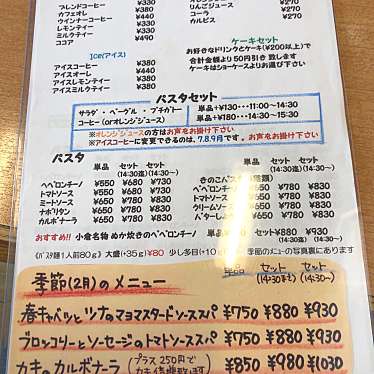 ブレンドコーヒー ¥330
カフェオレ ¥380
ウインナーコーヒー ¥380
レモンティー ¥380
ミルクティー ¥380
ココア ¥490
Ice(アイス)
アイスコーヒー ¥380
アイスオーレ ¥440
アイスレモンティー ¥380
アイスミルクティー ¥380
りんごジュース ¥270
コーラ ¥270
カルピス ¥270
ケーキセット
お好きなドリンクとケーキ(¥200以上)で
合計金額より50円引き 致します
ケーキはショーケースよりお選び下さい
パスタセット
サラダ・ベーグル・プチガトー 単品+¥130・・・11:00~14:30
コーヒー(orオレンジジュース) 単品+¥180・・・14:30~15:30
※オレンジジュースの方はお声をお掛け下さい
※アイスコーヒーに変更できるのは、7.8.9月です。お声をお掛け下さい
パスタ 単品 セット(14:30迄) セット(14:30~)
ペペロンチーノ ¥550 ¥680 ¥730
トマトソース ¥650 ¥780 ¥830
ミートソース ¥650 ¥780 ¥830
ナポリタン ¥650 ¥780 ¥830
カルボナーラ ¥650 ¥780 ¥830
きのこパスタ
単品 セット(14:30迄) セット(14:30~)
ペペロンチーノ ¥650 ¥780 ¥830
トマトソース
クリームソース
バターしょうゆ
おすすめ!! 小倉名物 ぬか炊きのペペロンチーノ
(パスタ麺1人前80g) 大盛(+35g)¥80 少し多目(+10g) 季節のメニューの写真裏に あります
季節(2月)のメニュー 単品 セット(14:30まで) セット(14:30~)
春キャベツとツナのマヨマスタードソーススパ ¥750 ¥880 ¥930
ブロッコリーとソーセージのトマトソーススパ ¥750 ¥880 ¥930
カキのカルボナーラ (プラス250円で ¥850 ¥980 ¥1030